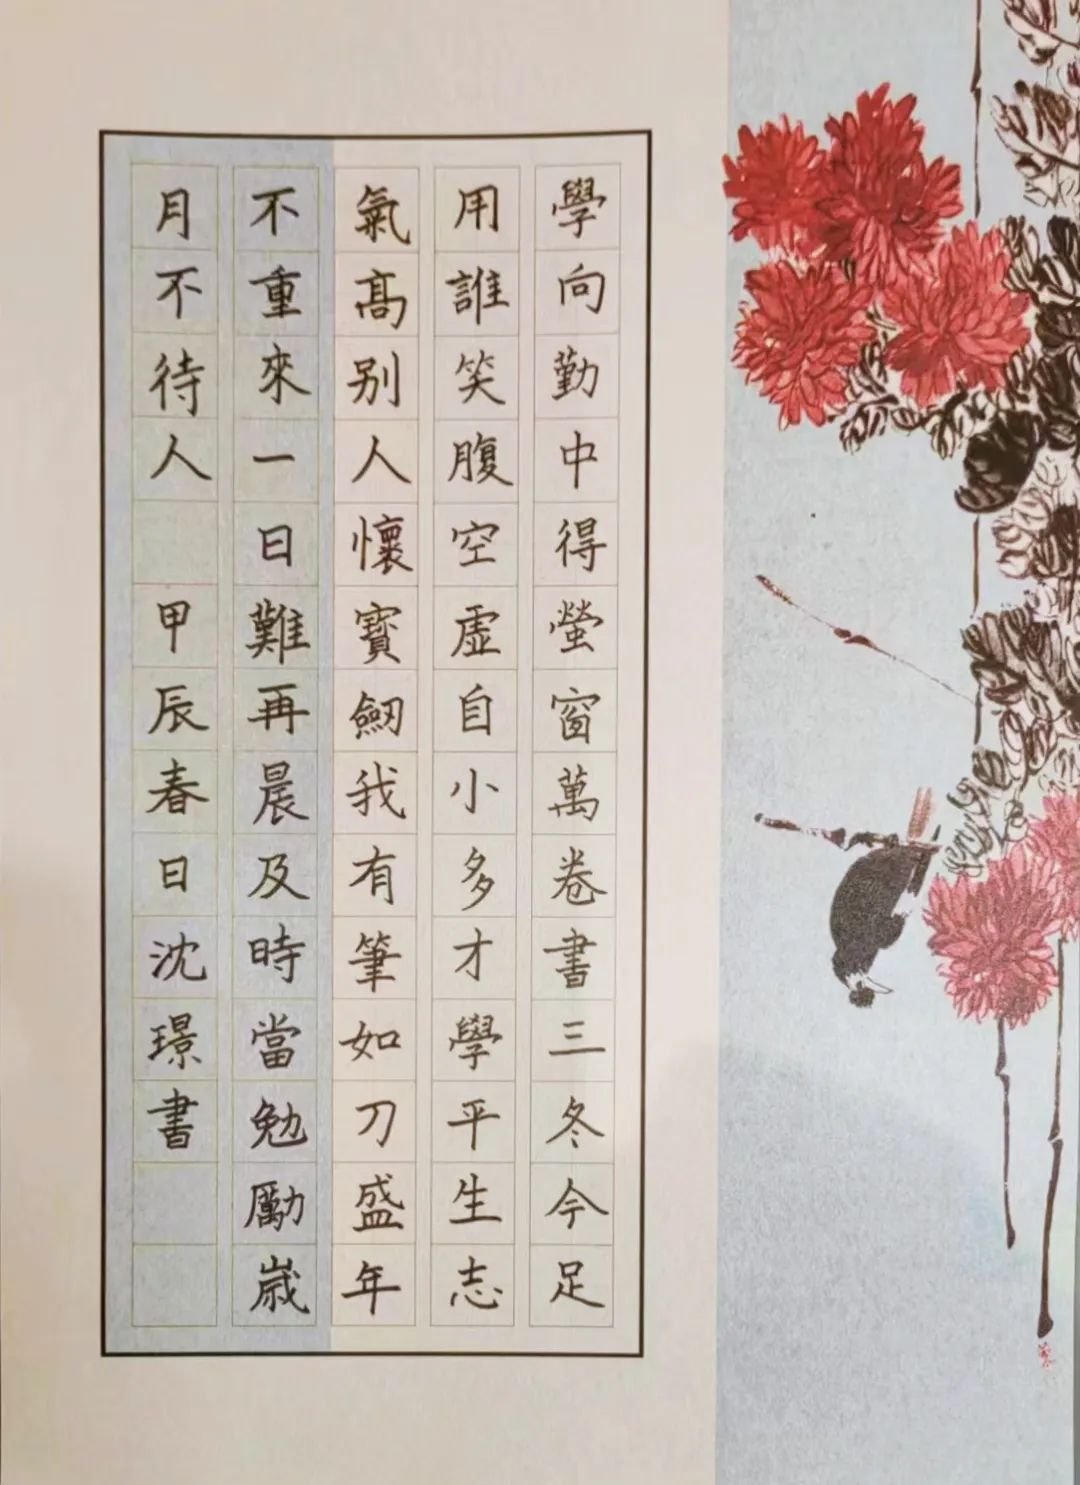 學向勤中得螢窗萬卷書三冬今足
用誰笑腹空虛自小多才學平生志
氣高别人懷寶劒我有筆如刀盛年
不重來一日難再晨及時當勉勵歲
月不待人 甲辰春日沈璟書